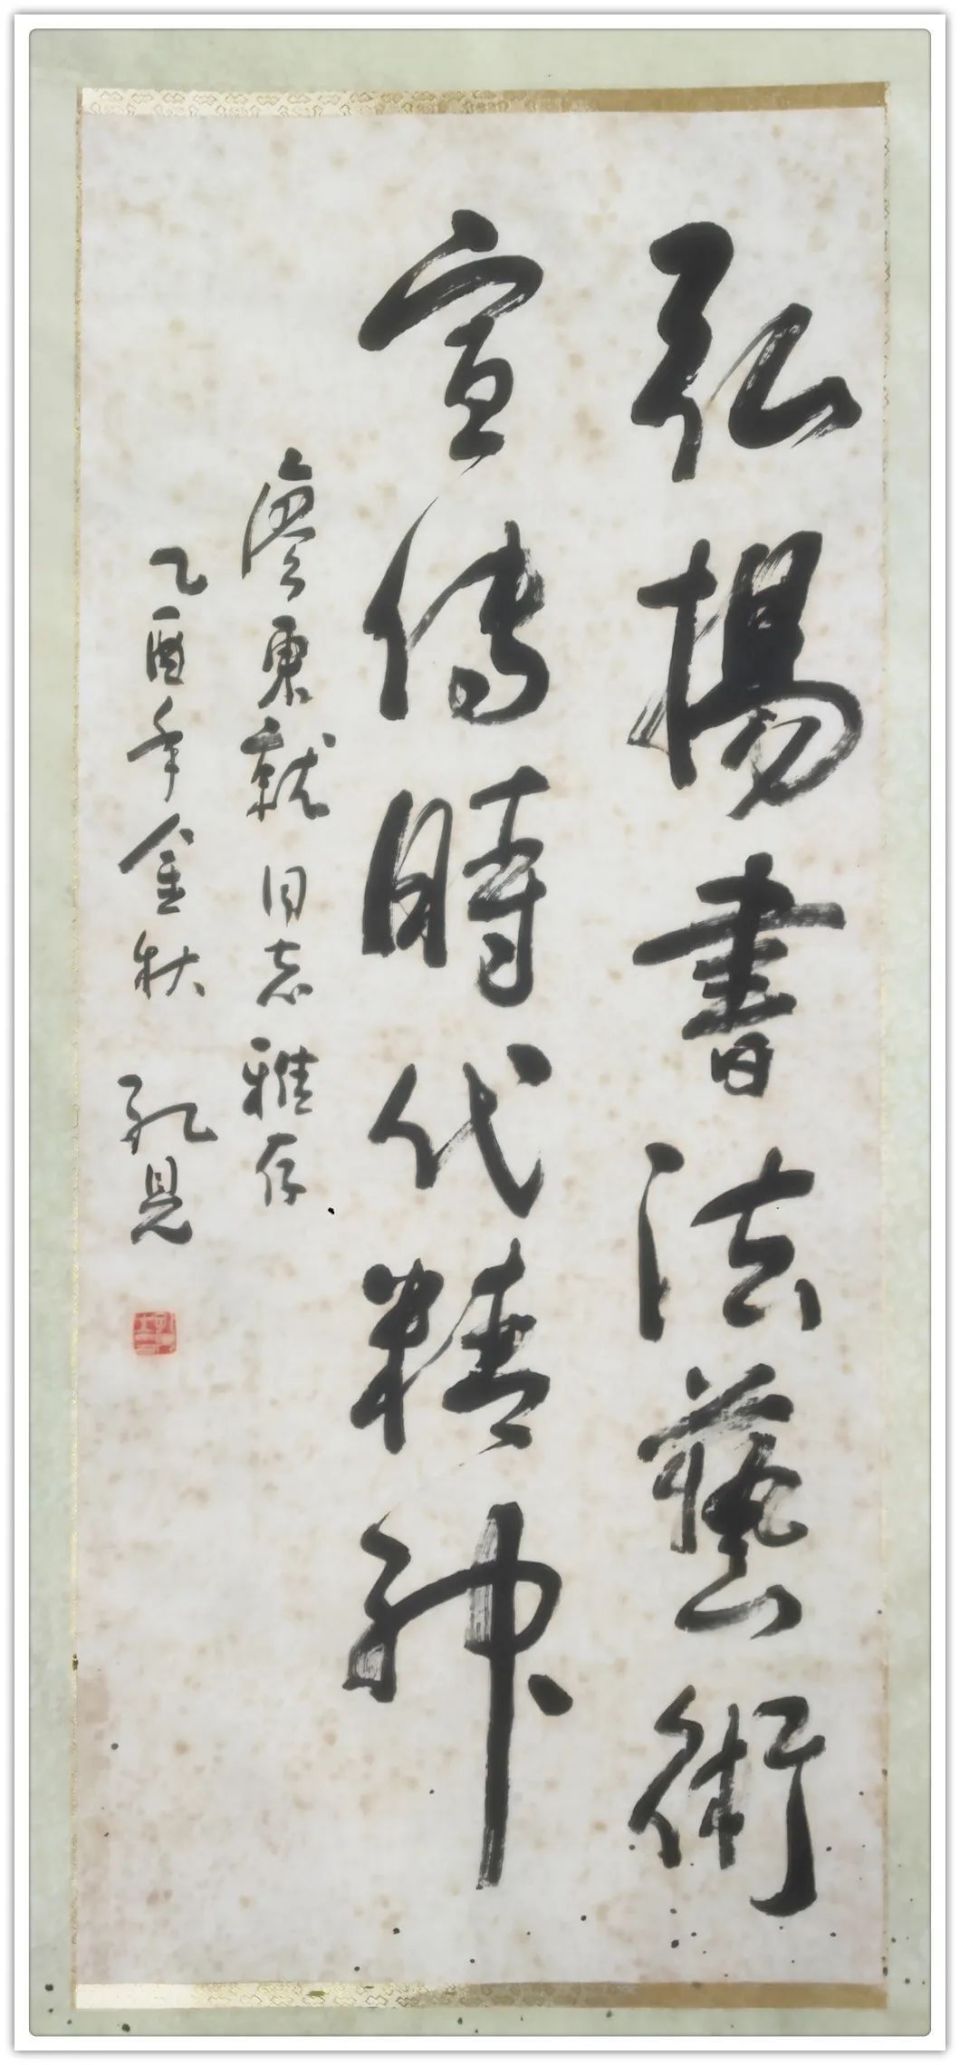 弘揚書法藝術
宣傳時代精神
廖東就同志雅存
乙酉年金秋 孔見